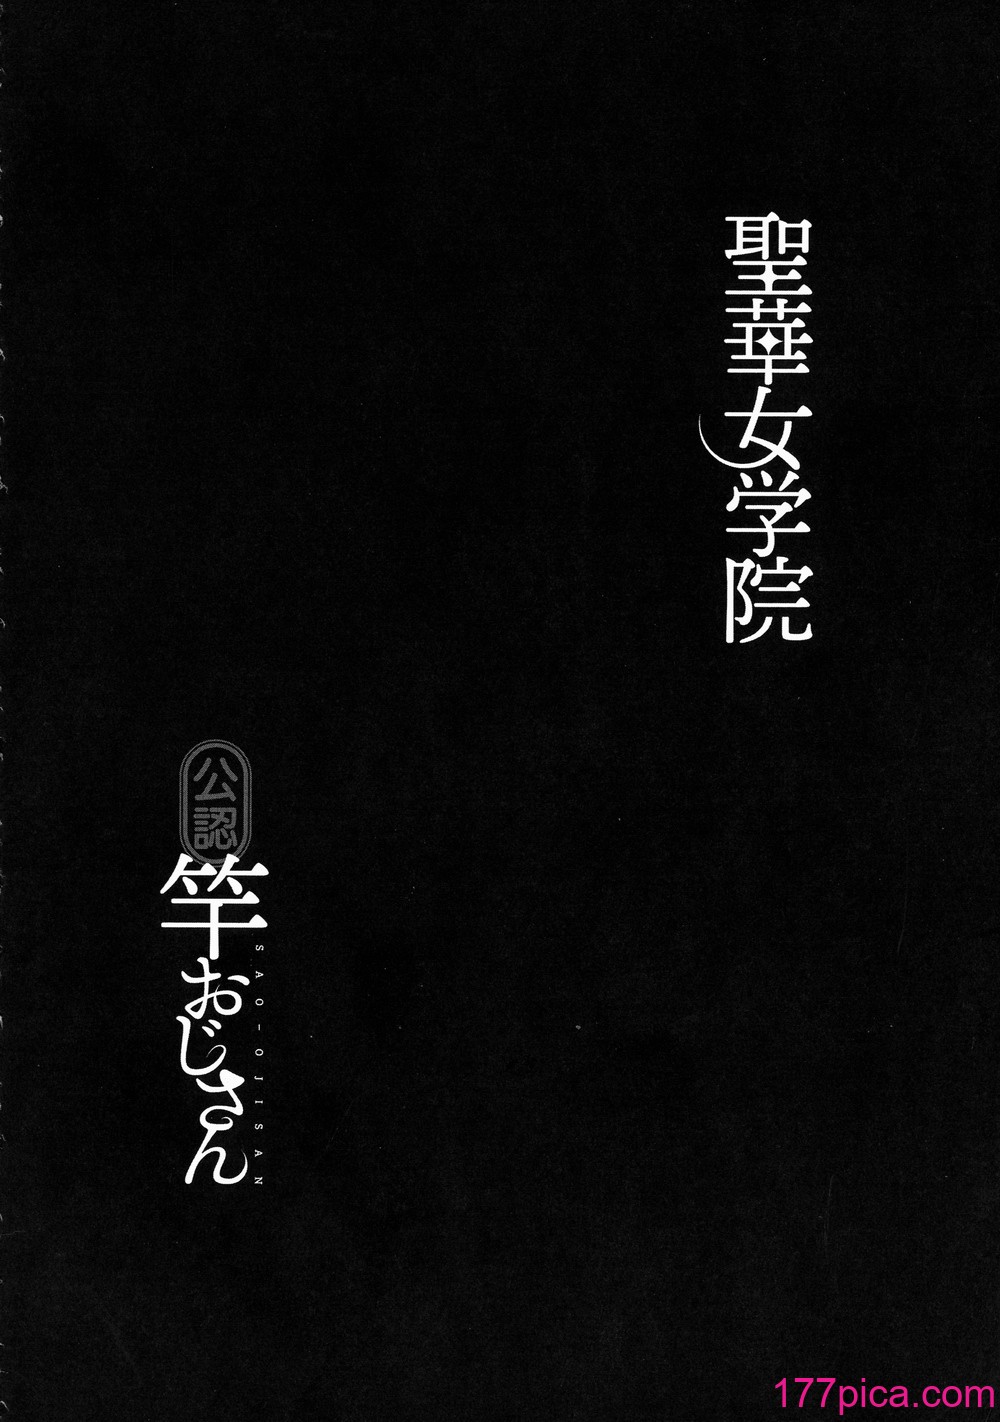 聖華女学院
公認
竿おじさん
SAO-OJISAN
177pica.com